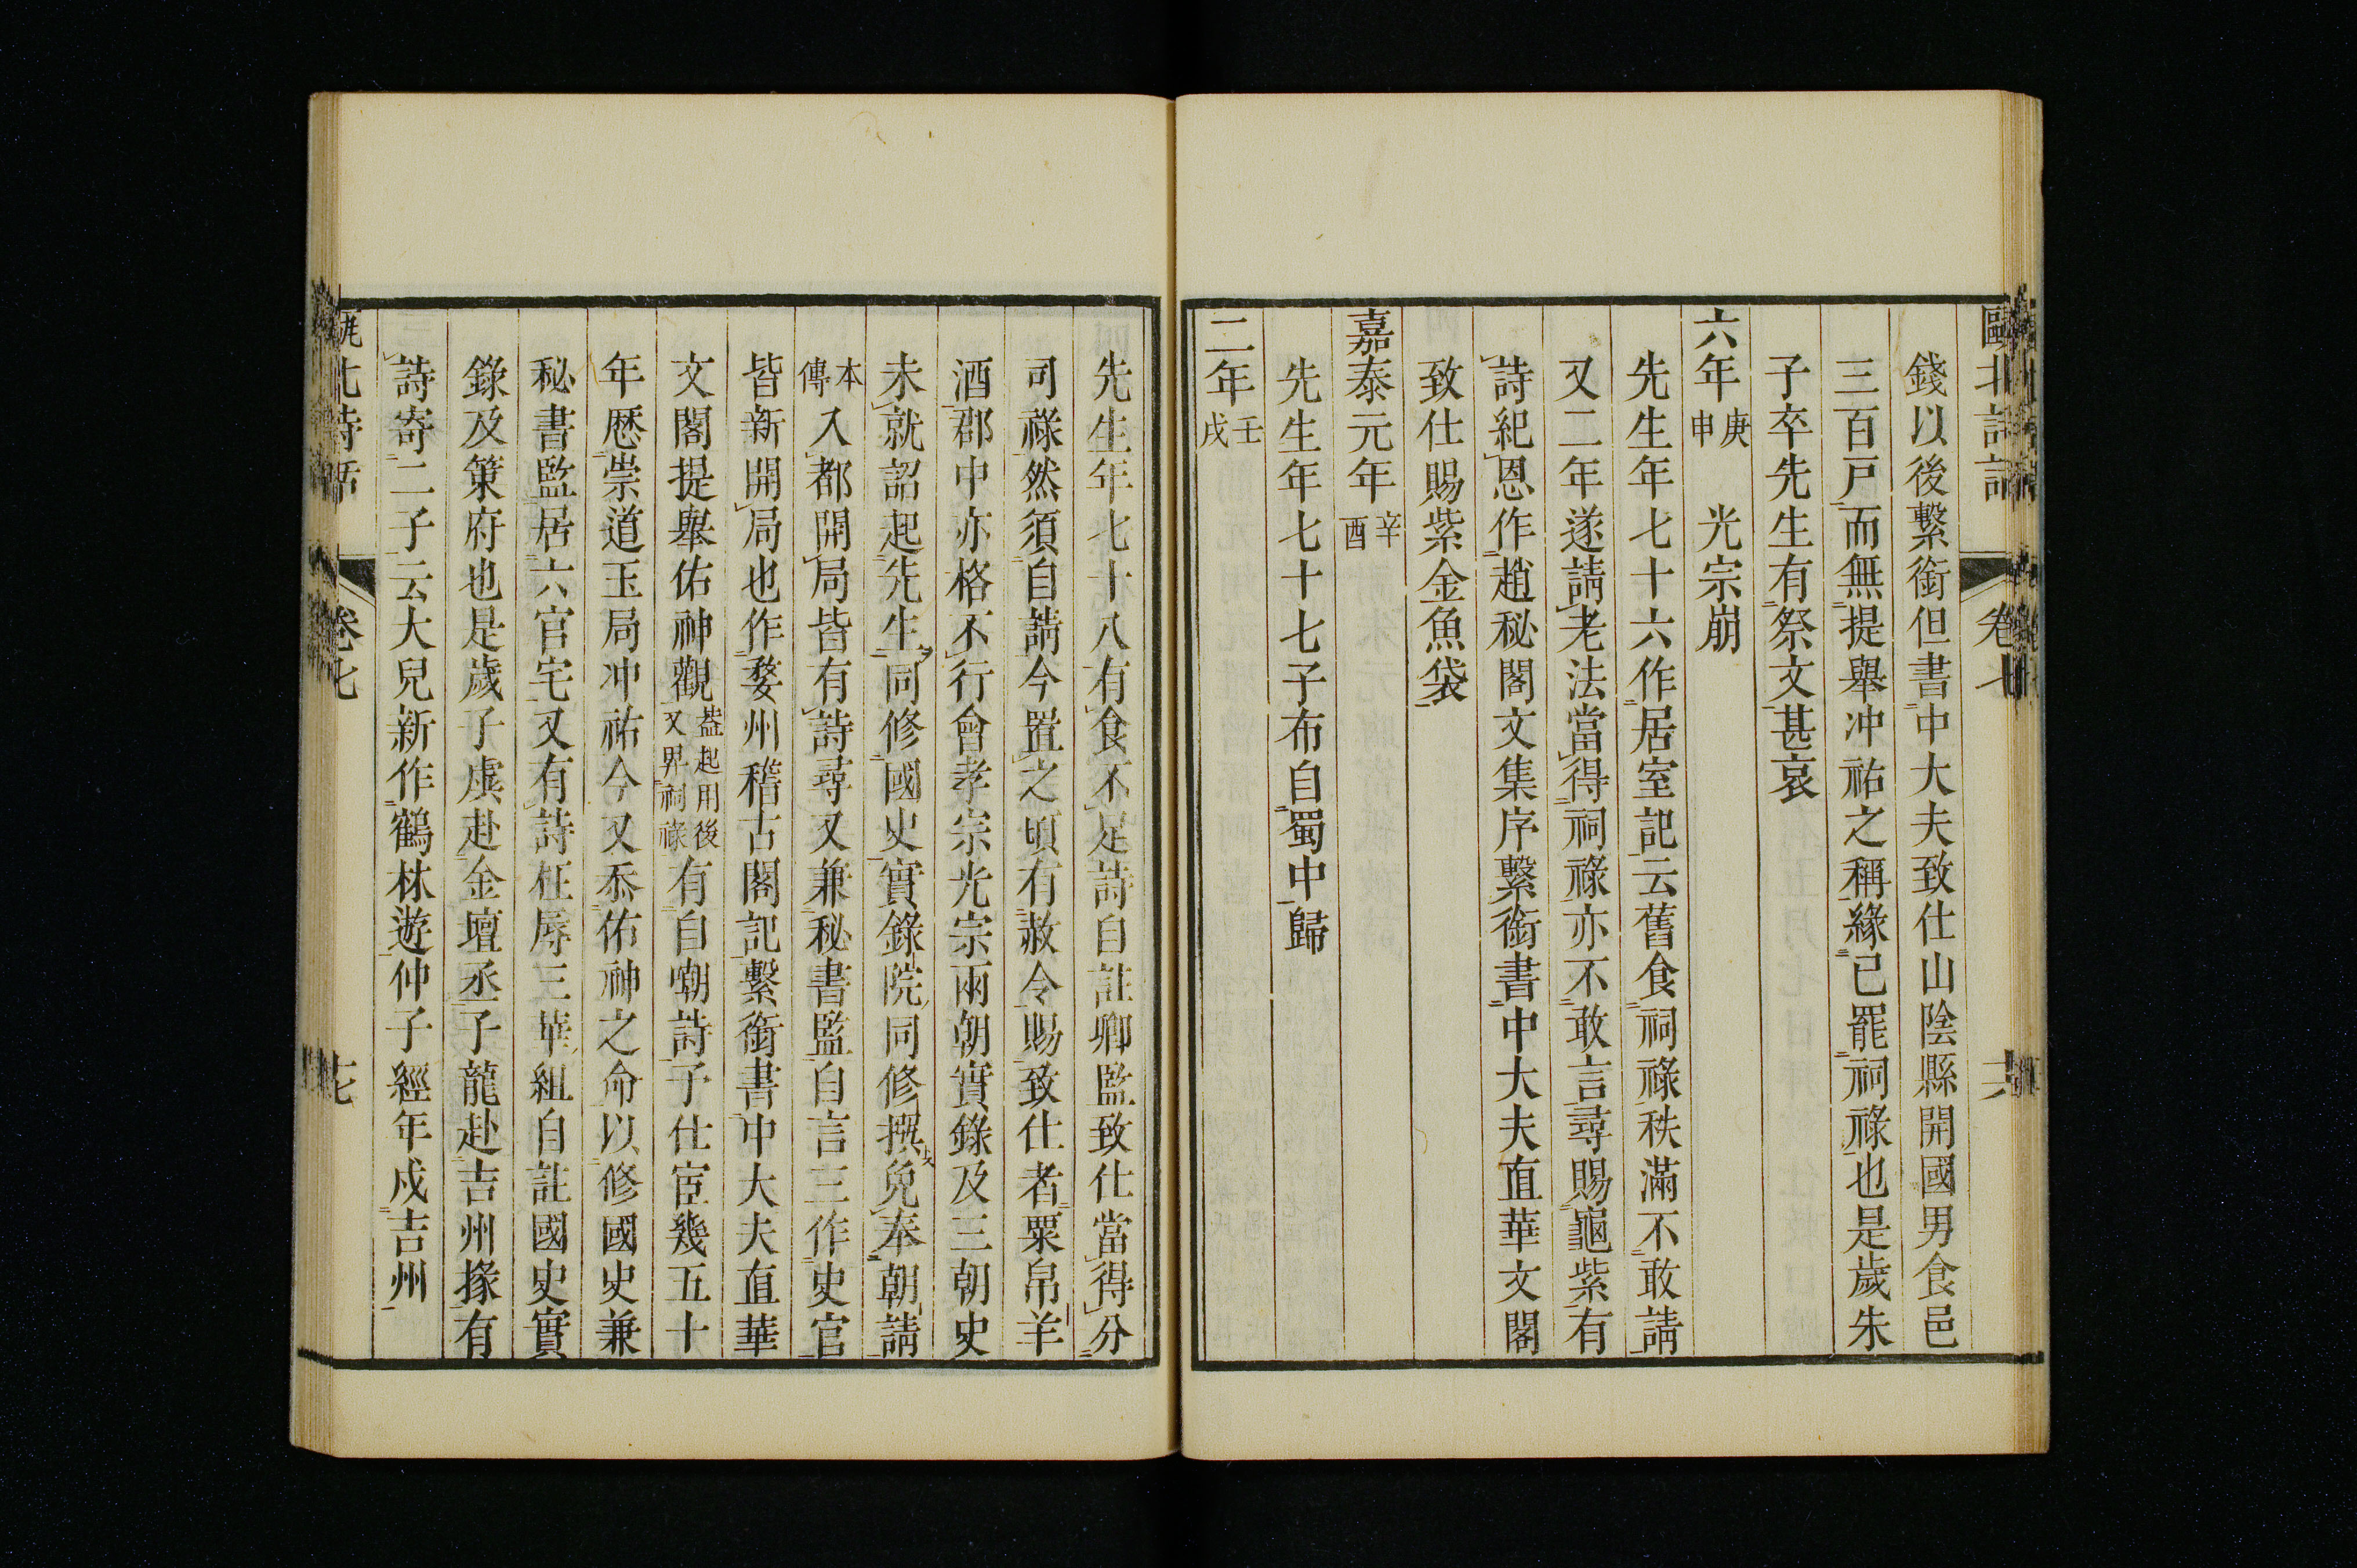 甌北詩話 卷七 十六
錢以後繫銜但書中大夫致仕山陰縣開國男食邑
三百戸而無提舉冲祐之稱緣已罷祠祿也是歲朱
子卒先生有祭文甚哀
六年庚申 光宗崩
先生年七十六作居室記云舊食祠祿秩滿不敢請
又二年遂請老法當得祠祿亦不敢言尋賜龜紫有
詩紀恩作趙秘閣文集序繫銜書中大夫直華文閣
致仕賜紫金魚袋
嘉泰元年辛酉
先生年七十七子布自蜀中歸
二年壬戌
先生年七十八有食不足詩自註卿監致仕當得分
司祿然須自請今置之頃有赦令賜致仕者粟帛羊
酒郡中亦格不行會孝宗光宗兩朝實錄及三朝史
未就詔起先生同修國史實錄院同修撰免奉朝請
本傳入都開局皆有詩尋又兼秘書監自言三作史官
皆新開局也作婺州稽古閣記繫銜書中大夫直華
文閣提舉佑神觀葢起用後又畀祠祿有自嘲詩予仕宦幾五十
年歴崇道玉局冲祐今又忝佑神之命以修國史兼
秘書監居六官宅又有詩枉辱三華組自註國史實
錄及策府也是歲子虡赴金壇丞子龍赴吉州掾有
詩寄二子云大兒新作鶴林遊仲子經年戍吉州
甌北詩話 卷七 十七